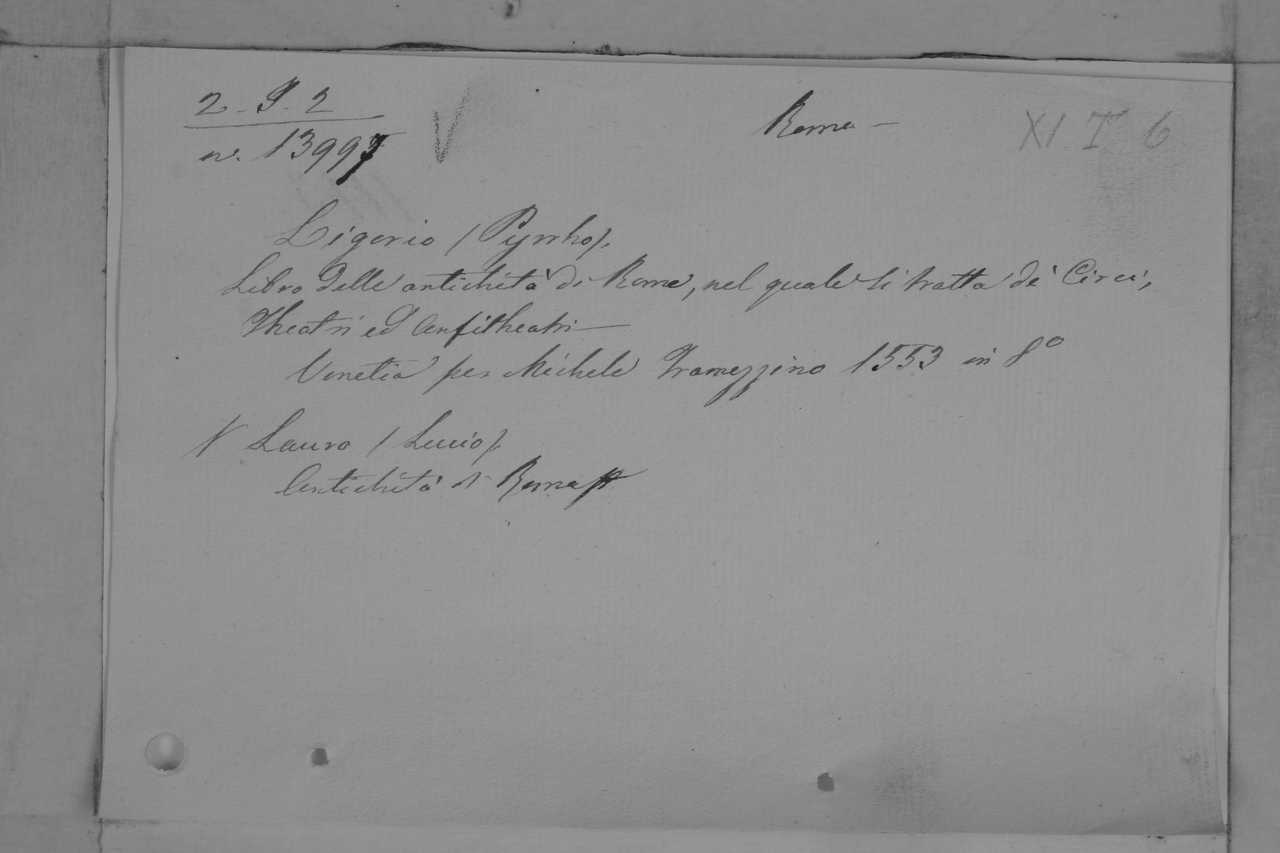 2. P. 2
n. 13997 V
Roma –
XI. T. 6
Ligorio / Pyrrho /.
Libro delle antichità di Roma, nel quale si tratta de' Circi,
Theatri ed Anfitheatri –
Venetia per Michele Tramezzino 1553 in 8º
V Lauro / Lucio /.
Antichità di Roma